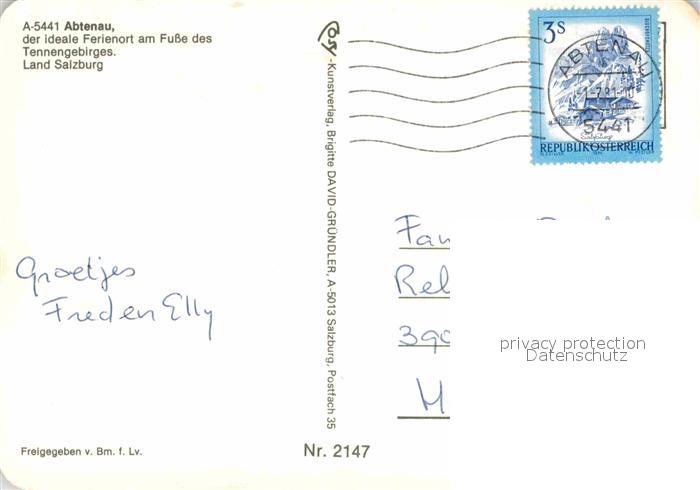 A-5441 Abtenau,
der ideale Ferienort am Fuße des
Tennengebirges.
Land Salzburg
-Kunstverlag, Brigitte DAVID-GRÜNDLER, A-5013 Salzburg, Postfach 35
3S
ABTENAU
5441
REPUBLIK ÖSTERREICH
Groetjes
Fred en Elly
Fam
Rel
390
H
privacy protection
Datenschutz
Freigegeben v. Bm. f. Lv.
Nr. 2147